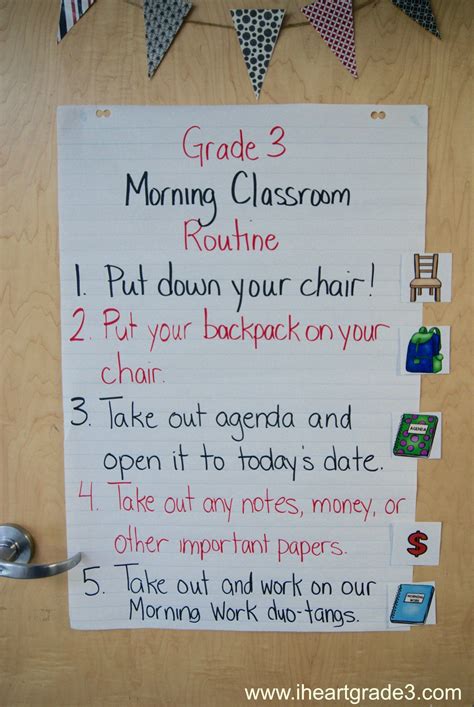 Grade 3
Morning Classroom
Routine
1. Put down your chair!
2. Put your backpack on your
chair.
3. Take out agenda and
open it to today's date.
AGENDA
4. Take out any notes, money, or
other important papers.
$
5. Take out and work on our
Morning Work duo-tangs.
MORNING
WORK
www.iheartgrade3.com